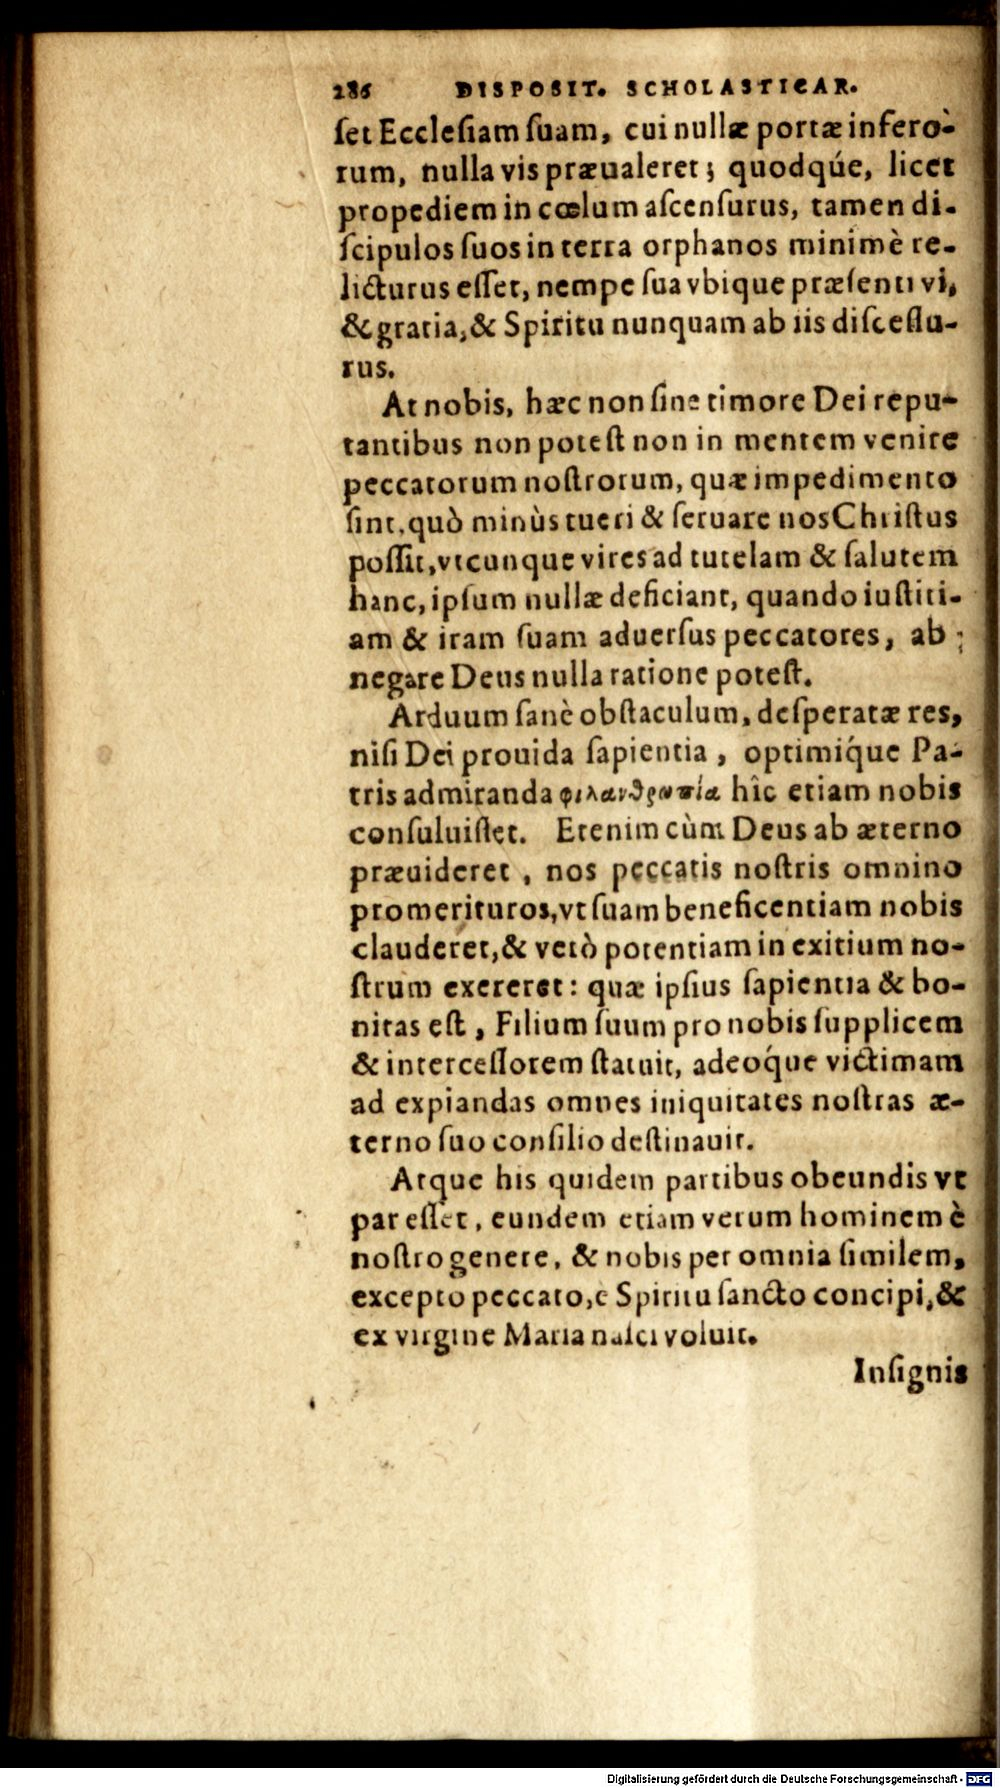 286 DISPOSIT. SCHOLASTICAR.
ſet Eccleſiam ſuam, cui nullæ portæ infero-
rum, nulla vis præualeret; quodqúe, licet
propediem in cœlum aſcenſurus, tamen di-
ſcipulos ſuos in terra orphanos minimè re-
licturus eſſet, nempe ſua vbique præſenti vi,
& gratia, & Spiritu nunquam ab iis diſceſſu-
rus.
At nobis, hæc non ſine timore Dei repu-
tantibus non poteſt non in mentem venire
peccatorum noſtrorum, quæ impedimento
ſint, quò minùs tueri & ſeruare nos Chriſtus
poſſit, vtcunque vires ad tutelam & ſalutem
hanc, ipſum nullæ deficiant, quando iuſtiti-
am & iram ſuam aduerſus peccatores, ab-
negare Deus nulla ratione poteſt.
Arduum ſanè obſtaculum, deſperatæ res,
niſi Dei prouida ſapientia, optimiq́ue Pa-
tris admiranda φιλανθρωπία hîc etiam nobis
conſuluiſſet. Etenim cùm Deus ab æterno
præuideret, nos peccatis noſtris omnino
promerituros, vt ſuam beneficentiam nobis
clauderet, & verò potentiam in exitium no-
ſtrum exereret: quæ ipſius ſapientia & bo-
nitas eſt, Filium ſuum pro nobis ſupplicem
& interceſſorem ſtatuit, adeoq́ue victimam
ad expiandas omnes iniquitates noſtras æ-
terno ſuo conſilio deſtinauit.
Atque his quidem partibus obeundis vt
par eſſet, eundem etiam verum hominem è
noſtro genere, & nobis per omnia ſimilem,
excepto peccato, è Spiritu ſancto concipi, &
ex virgine Maria naſci voluit.
Inſignis
Digitalisierung gefördert durch die Deutsche Forschungsgemeinschaft - DFG